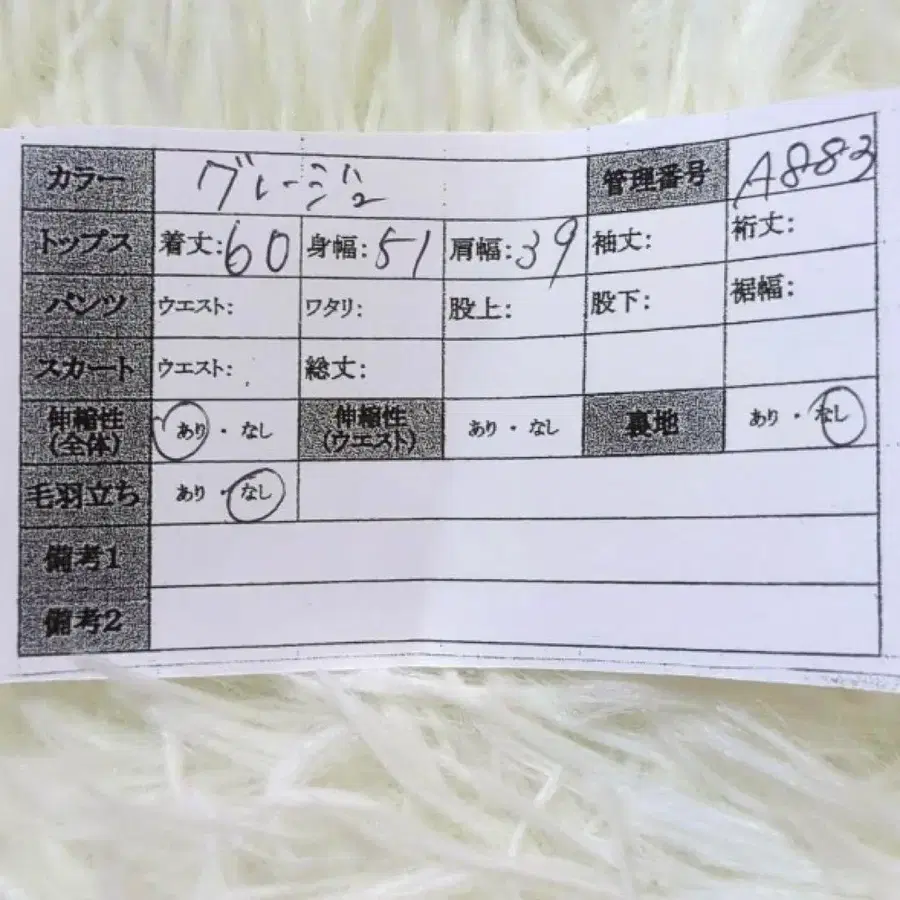 カラー グレージュ 管理番号 A883
トップス 着丈:60 身幅:51 肩幅:39 袖丈: 裄丈:
パンツ ウエスト: ワタリ: 股上: 股下: 裾幅:
スカート ウエスト: 総丈:
伸縮性(全体) あり・なし 伸縮性(ウエスト) あり・なし 裏地 あり・なし
毛羽立ち あり・なし
備考1
備考2